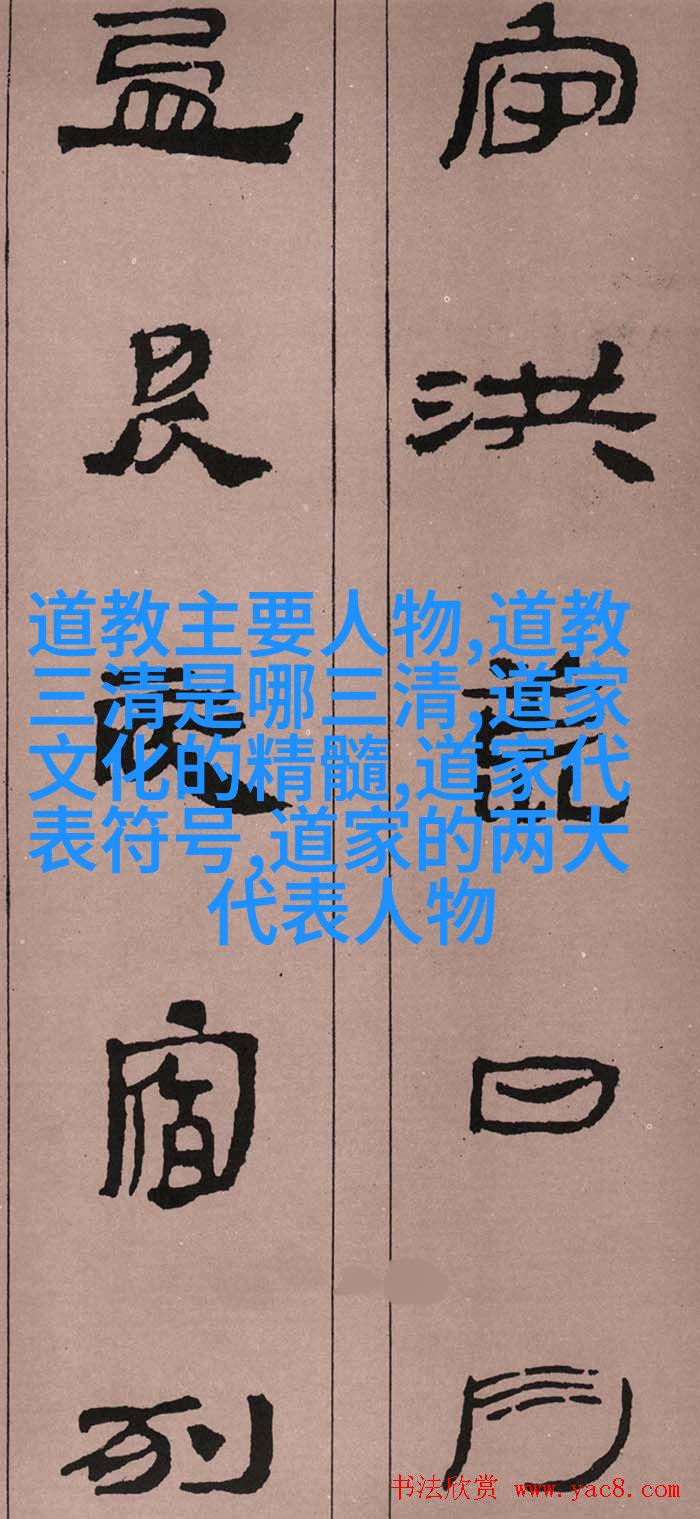 宙洪荒日月
盈昃辰宿列
道教主要人物,道教
三清是哪三清,道家
文化的精髓,道家代
表符号,道家的两大
代表人物
书法欣赏 www.yac8.com